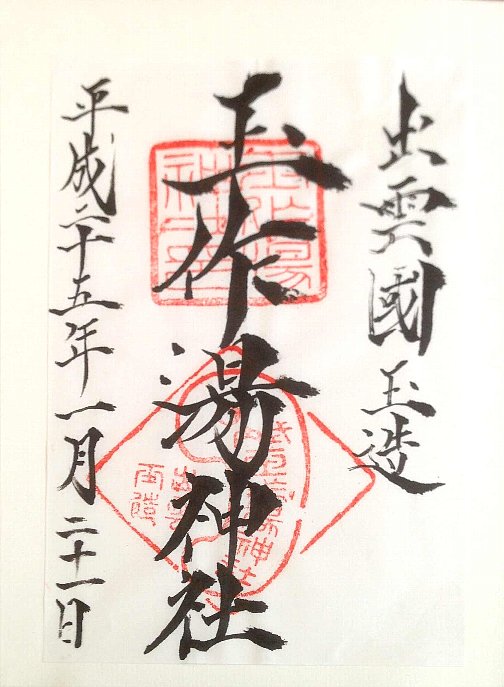 出雲國玉造
玉作湯神社
平成二十五年一月二十一日